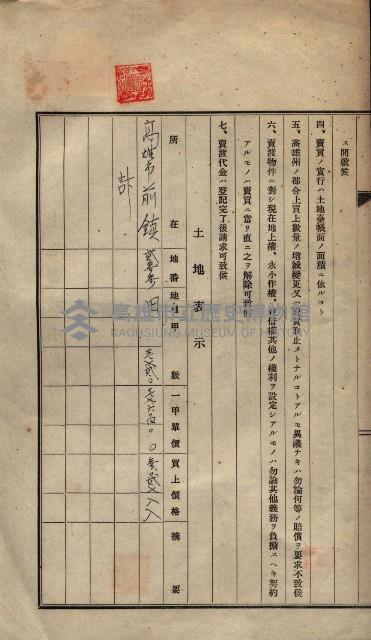 ス間敷候
四、賣買ノ實行ハ土地臺帳面ノ面積ニ依ルコト
五、高雄州ノ都合上買上數量ノ增減變更又ハ買取止メトナルコトアルモ異議ナキハ勿論何等ノ賠償ヲ要求不致候
六、賣渡物件ニ對シ現在地上權、永小作權、賃借權其他ノ權利ヲ設定シアルモノハ勿論其他義務ヲ負擔スヘキ契約
アルモノハ賣買ニ當リ直ニ之ヲ解除可致候
七、賣渡代金ハ登記完了後請求可致候
土地表示
所在 地番 地目 甲數 一甲單價 買上價格 摘要
高雄市前鎮
計
高雄市立歷史博物館
KAOHSIUNG MUSEUM OF HISTORY